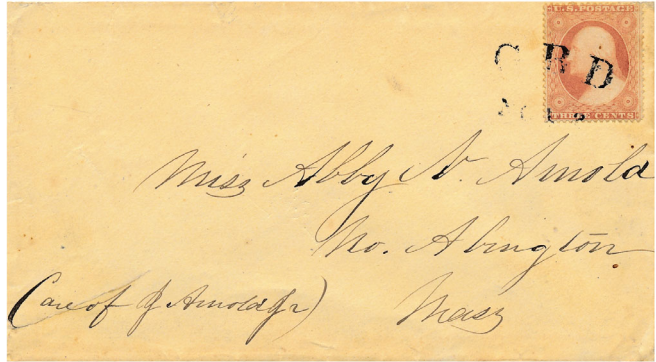 U.S. POSTAGE
THREE CENTS
Miss Abby N. Arnold
No. Abington
Mass
(Care of J Arnold Jr)